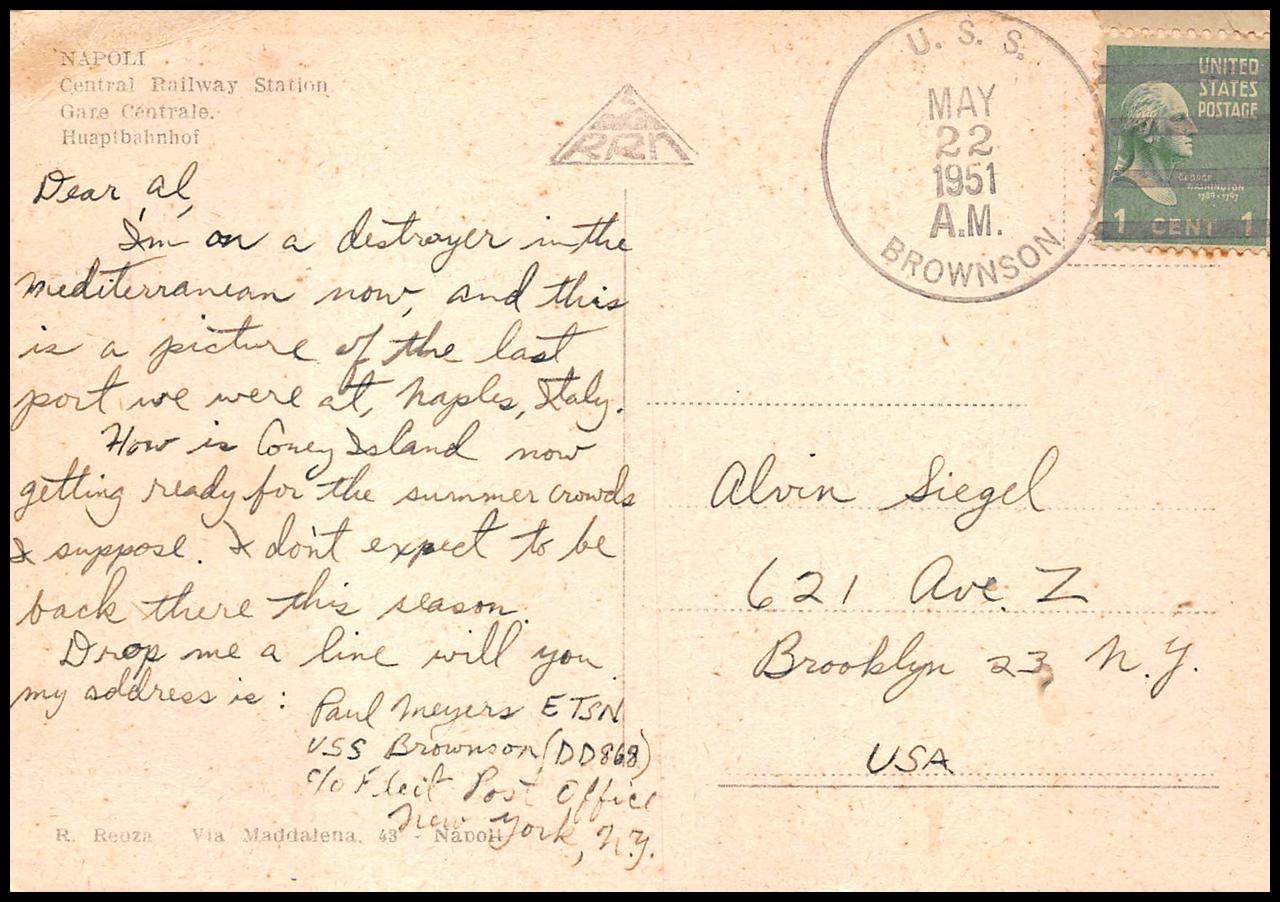 NAPOLI
Central Railway Station
Gare Centrale.
Huaptbahnhof
RRN
U. S. S.
MAY
22
1951
A.M.
BROWNSON
UNITED
STATES
POSTAGE
GEORGE
WASHINGTON
1789-1797
1 CENT 1
Dear Al,
I'm on a destroyer in the
Mediterranean now, and this
is a picture of the last
port we were at, Naples, Italy.
How is Coney Island now
getting ready for the summer crowds
I suppose. I don't expect to be
back there this season.
Drop me a line will you
my address is:
Paul Meyers ETSN
USS Brownson (DD868)
c/o Fleet Post Office
New York, N.Y.
Alvin Siegel
621 Ave. Z
Brooklyn 23 N.Y.
USA
R. Reoza Via Maddalena, 43 - Napoli